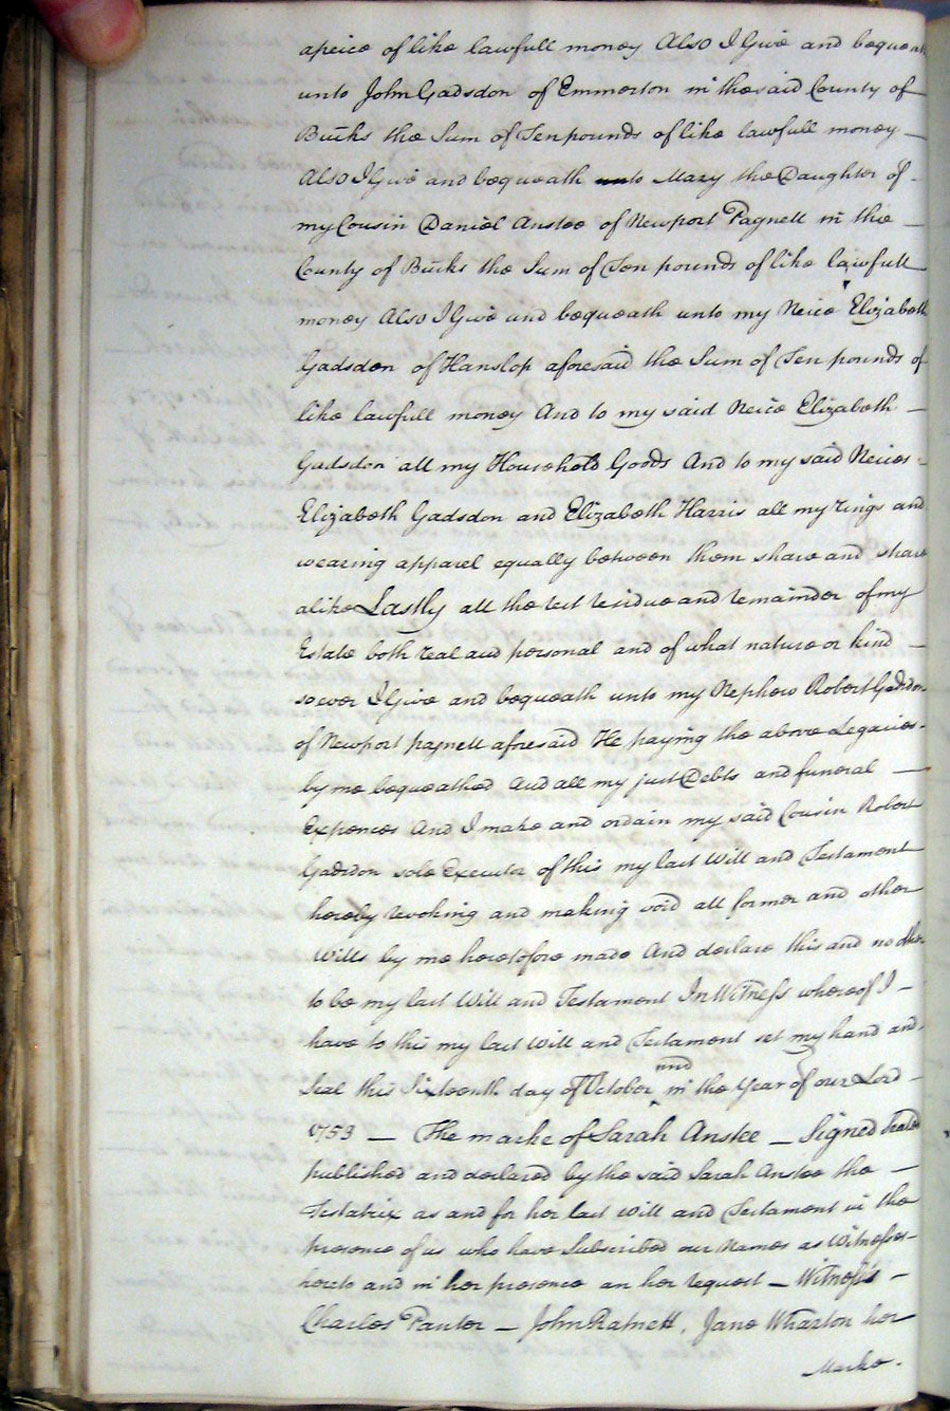 apeice of like lawfull money Also I Give and bequeath
unto John Gadsdon of Emmerton in the said County of
Bucks the Sum of Ten pounds of like lawfull money —
Also I Give and bequeath unto Mary the Daughter of -
my Cousin Daniel Anstee of Newport Pagnell in the —
County of Bucks the Sum of Ten pounds of like lawfull
money Also I Give and bequeath unto my Neice Elizabeth
Gadsden of Hanslop aforesaid the Sum of Ten pounds of
like lawfull money And to my said Neice Elizabeth —
Gadsdon all my Household Goods And to my said Neices -
Elizabeth Gadsdon and Elizabeth Harris all my rings and
wearing apparel equally between them share and share
alike Lastly all the rest residue and remainder of my
Estate both real and personal and of what nature or kind —
soever I Give and bequeath unto my Nephew Robert Gadsdon
of Newport pagnell aforesaid He paying the above Legacies -
by me bequeathed And all my just Debts and funeral —
Expences And I make and ordain my said Cousin Robert
Gadsdon sole Executor of this my last Will and Testament
hereby revoking and making void all former and other
Wills by me heretofore made And declare this and no other
to be my last Will and Testament In Witness whereof I —
have to this my last Will and Testament set my hand and
Seal this Sixteenth day of October and in the Year of our Lord -
1753 — The marke of Sarah Anstee — Signed Sealed
published and declared by the said Sarah Anstee the —
Testatrix as and for her last Will and Testament in the
presence of us who have Subscribed our Names as Witnesses -
hereto and in her presence an her request — Witness's —
Charles Panter — John Ratnett, Jane Wharton her
Marke.